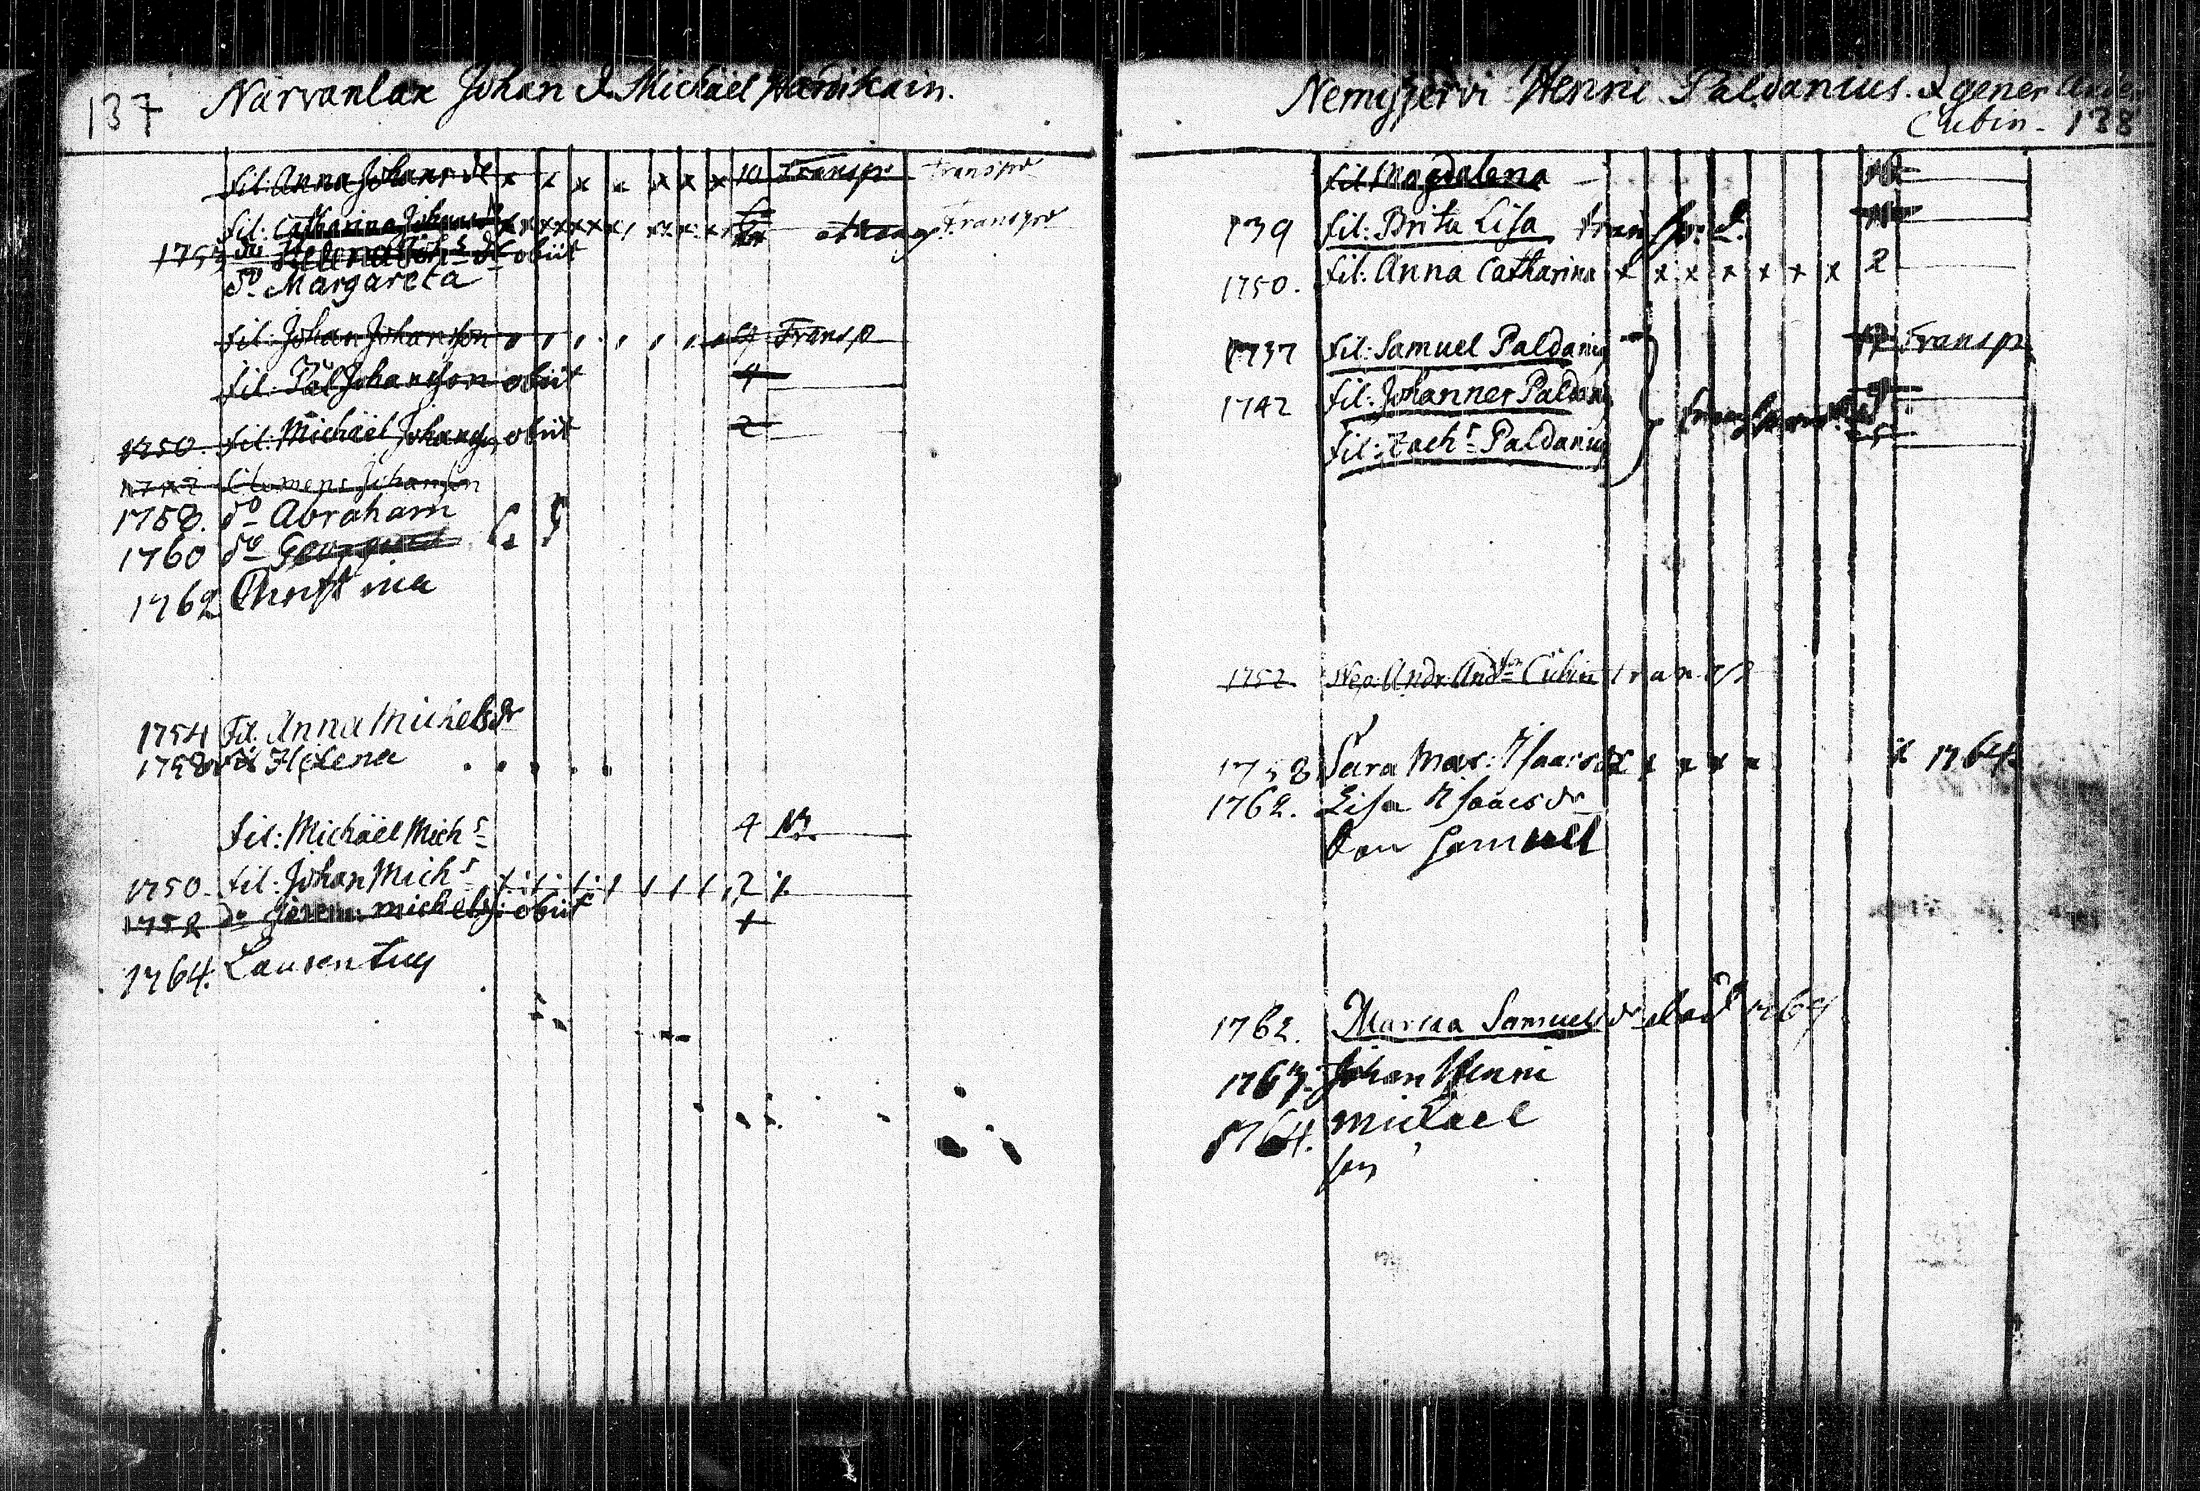 137 Närvänlax Johan & Michäel Hardikain.
fil: Anna Johans dr x x x x x x 10 Transp Transpr
fil: Catharina Johans dr Transpr
1755 do Helena Joh s dr obiit
do Margareta
fil: Johan Johansson 9 Transp
fil: Pål Johansson obiit 4
1750. fil: Michäel Johanss obiit 2
Clemens Johanson
1758. do Abraham
1760 do
1762 Christina
1754 Fil. Anna Michelsdr
1758 Helena
fil: Michäel Mich s 4
1750. fil: Johan Mich s 2
1752 do michelss: obiit
1764. Laurentius
Nemisjervi Henric Paldanius. & gener
Cubin. 138
fil Magdalena 10
1739 fil: Brita Lisa
1750. fil: Anna Catharina x x x x x x x 2
1737 fil: Samuel Paldanius Transp
1742 fil: Johannes Paldani
fil: Zach s Paldanius
1752 Nep: Andr. And Cubin transp
1758 Sara Mar: Isaacsdr x x x x 1764.
1762. Lisa Isaacsdr
Samuel
1762. Maria Samuelsdr död 1764
1763. Johan Henric
1764. Michael